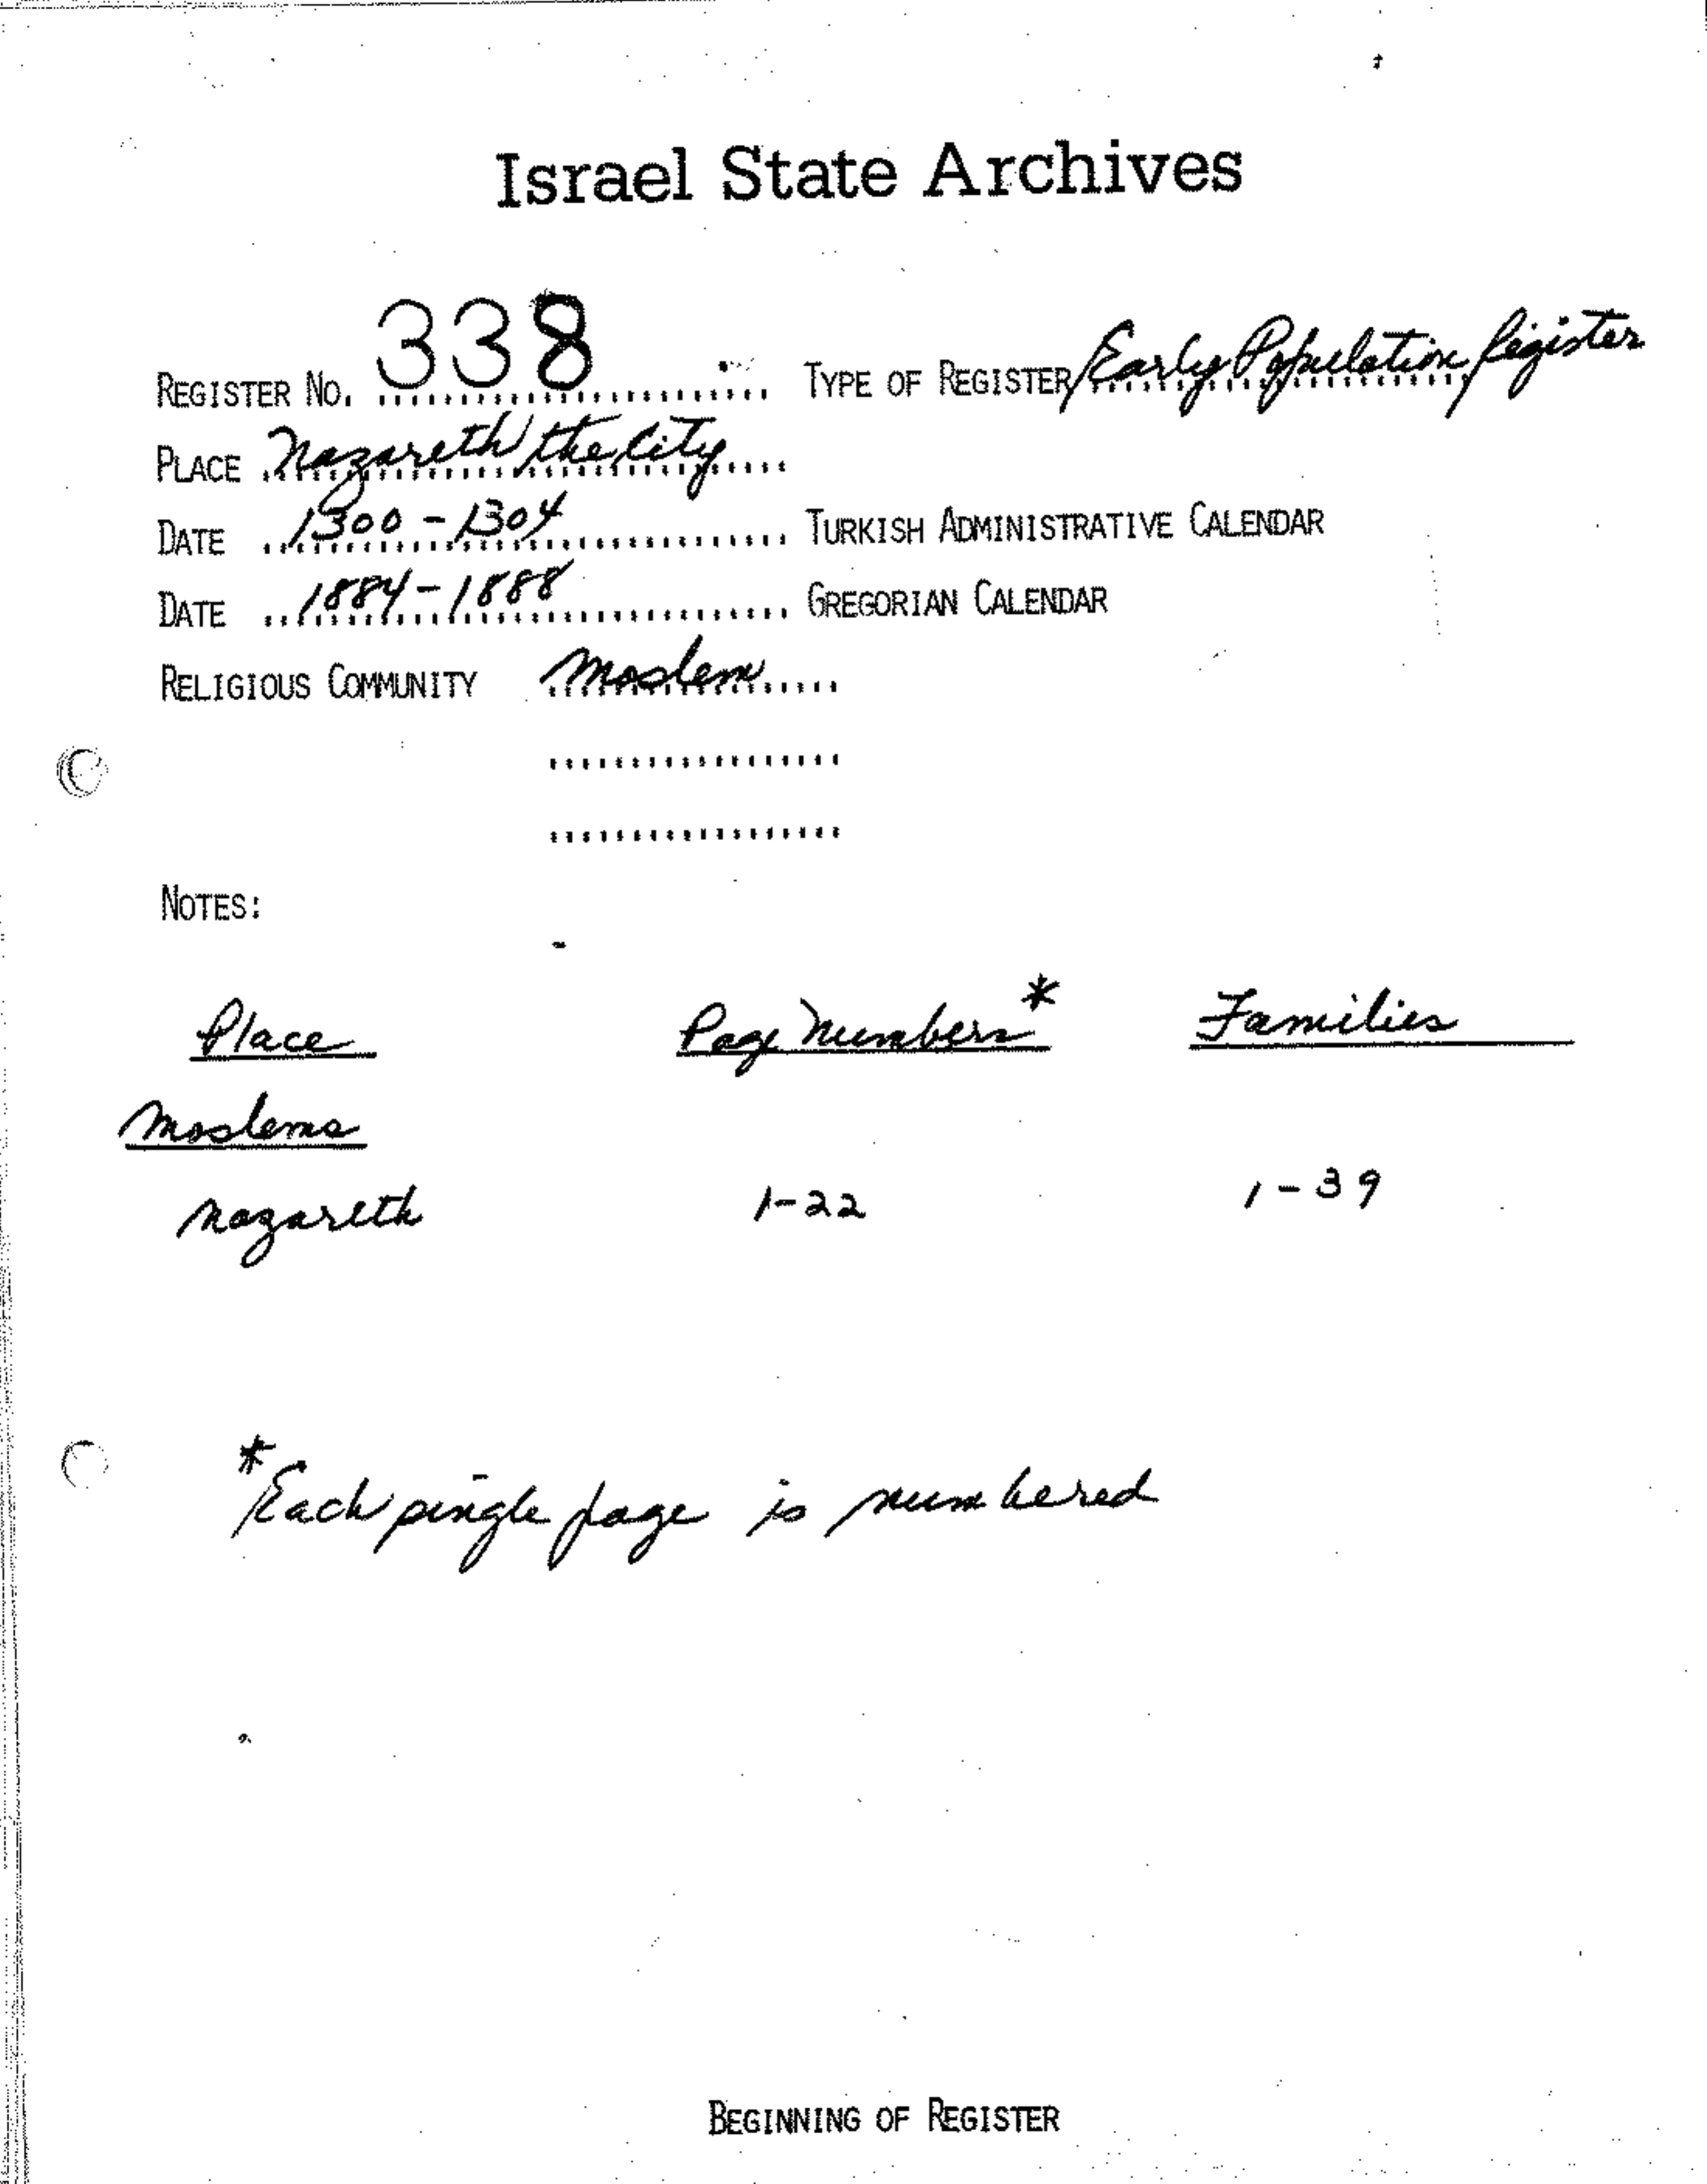 Israel State Archives
REGISTER NO. 338 TYPE OF REGISTER Early Population Register
PLACE Nazareth the City
DATE 1300-1304 TURKISH ADMINISTRATIVE CALENDAR
DATE 1884-1888 GREGORIAN CALENDAR
RELIGIOUS COMMUNITY Moslem
NOTES:
Place Page Numbers* Families
Moslems
Nazareth 1-22 1-39
*Each single page is numbered
BEGINNING OF REGISTER